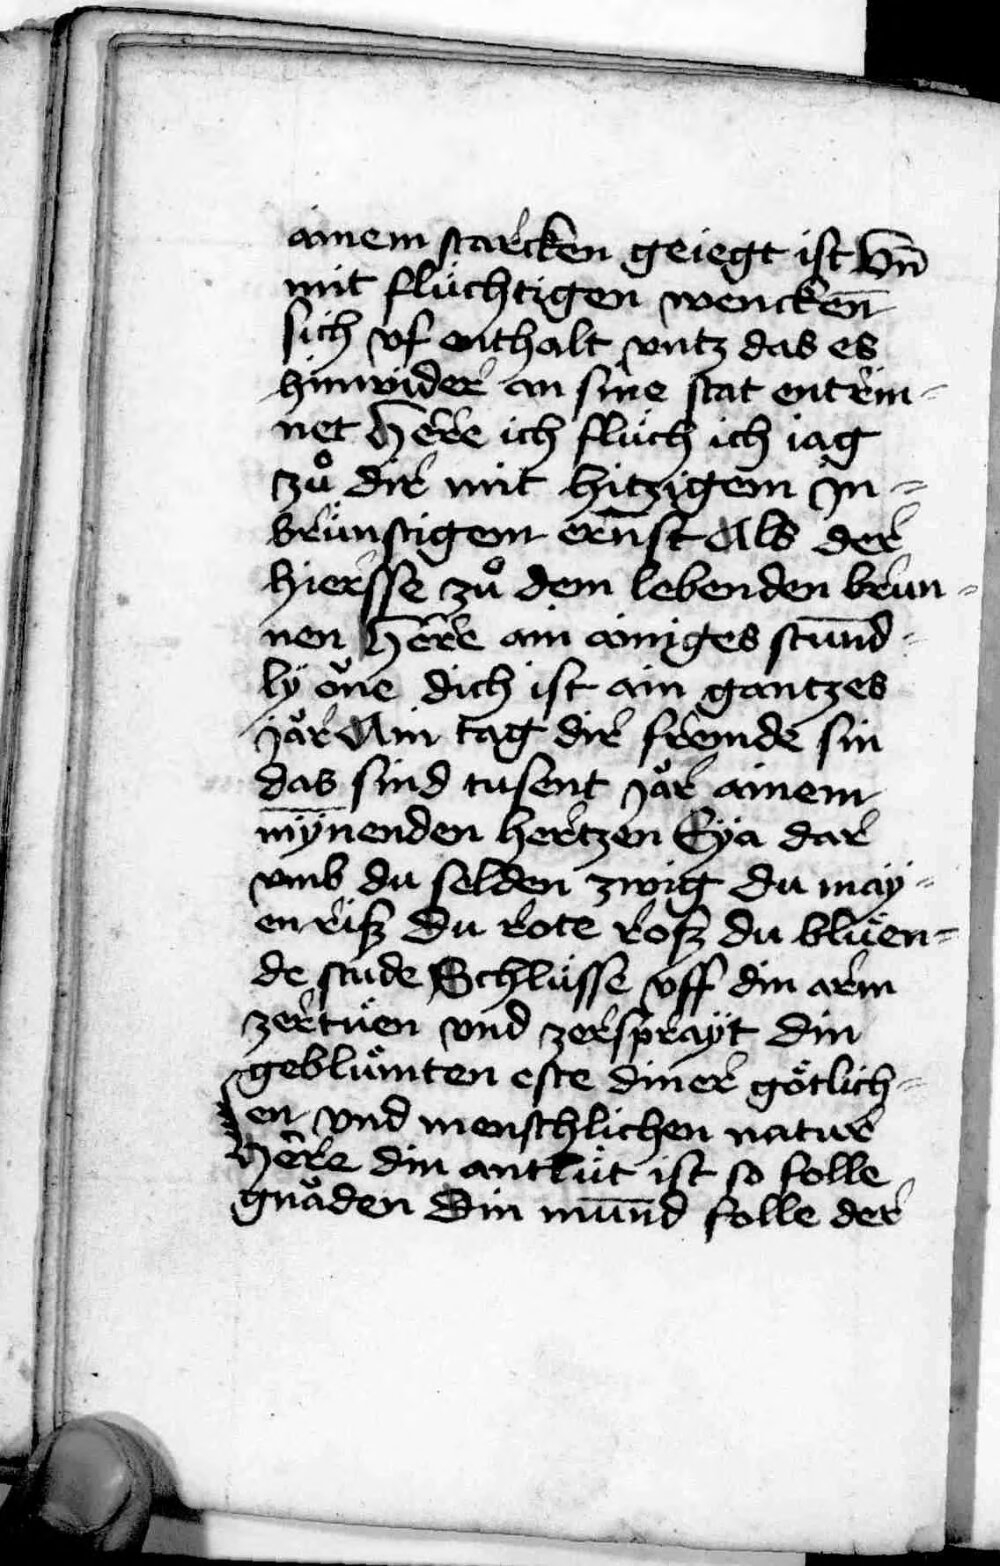 ainem starcken geiegt ist Vn̄
mit flüchtigen wencken̄
sich vf enthalt vntz das es
hinwider an sine stat entrin=
net Here ich flüch ich iag
zů dir mit hitzigem jn=
brünstigem ern̄st Als der
hiersse zů dem lebenden brun=
nen Here ain ainiges stun̄d=
ly ǒne dich ist ain gantzes
jǎr Ain tag dir fremde sin
das sind tusent jǎr ainem
mȳnenden hertzen Eÿa dar
vmb du selden zwig du maÿ=
en riß du rote roß du blůen=
de stude Schlüsse vff din arm
zertůen vnd zersprayt din
geblůmten este diner gőtlich=
en vnd menschlichen natur
Here din antlüt ist so folle
gnǎden Din mun̄d folle der